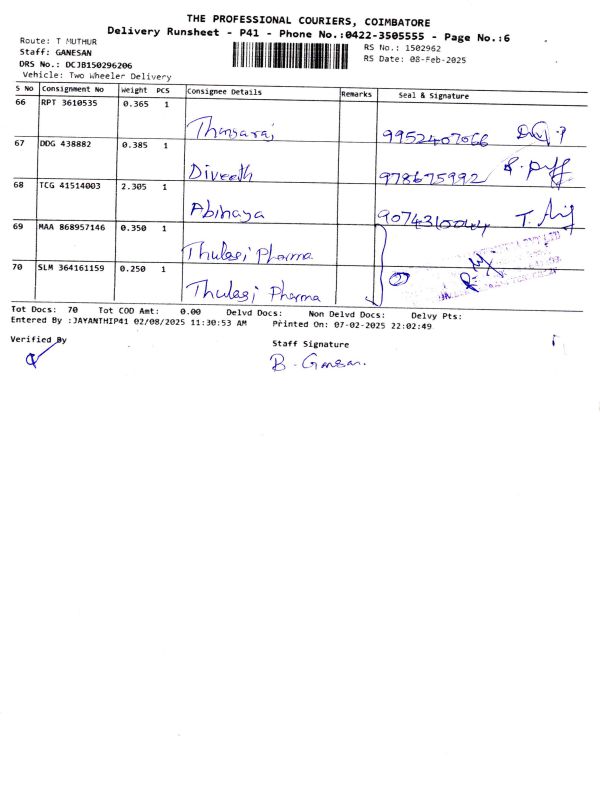 THE PROFESSIONAL COURIERS, COIMBATORE
Delivery Runsheet - P41 - Phone No.:0422-3505555 - Page No.:6
Route: T MUTHUR
RS No.: 1502962
Staff: GANESAN
RS Date: 08-Feb-2025
DRS No.: DCJB150296206
Vehicle: Two Wheeler Delivery
S No Consignment No Weight PCS Consignee Details Remarks Seal & Signature
66 RPT 3610535 0.365 1
9952407066
67 DDG 438882 0.385 1
Diveeth 978675992
68 TCG 41514003 2.305 1
Abinaya
69 MAA 868957146 0.350 1
Thulasi Pharma
70 SLM 364161159 0.250 1
Thulasi Pharma
Tot Docs: 70 Tot COD Amt: 0.00 Delvd Docs: Non Delvd Docs: Delvy Pts:
Entered By :JAYANTHIP41 02/08/2025 11:30:53 AM Printed On: 07-02-2025 22:02:49
Verified By Staff Signature
B. Ganesan.